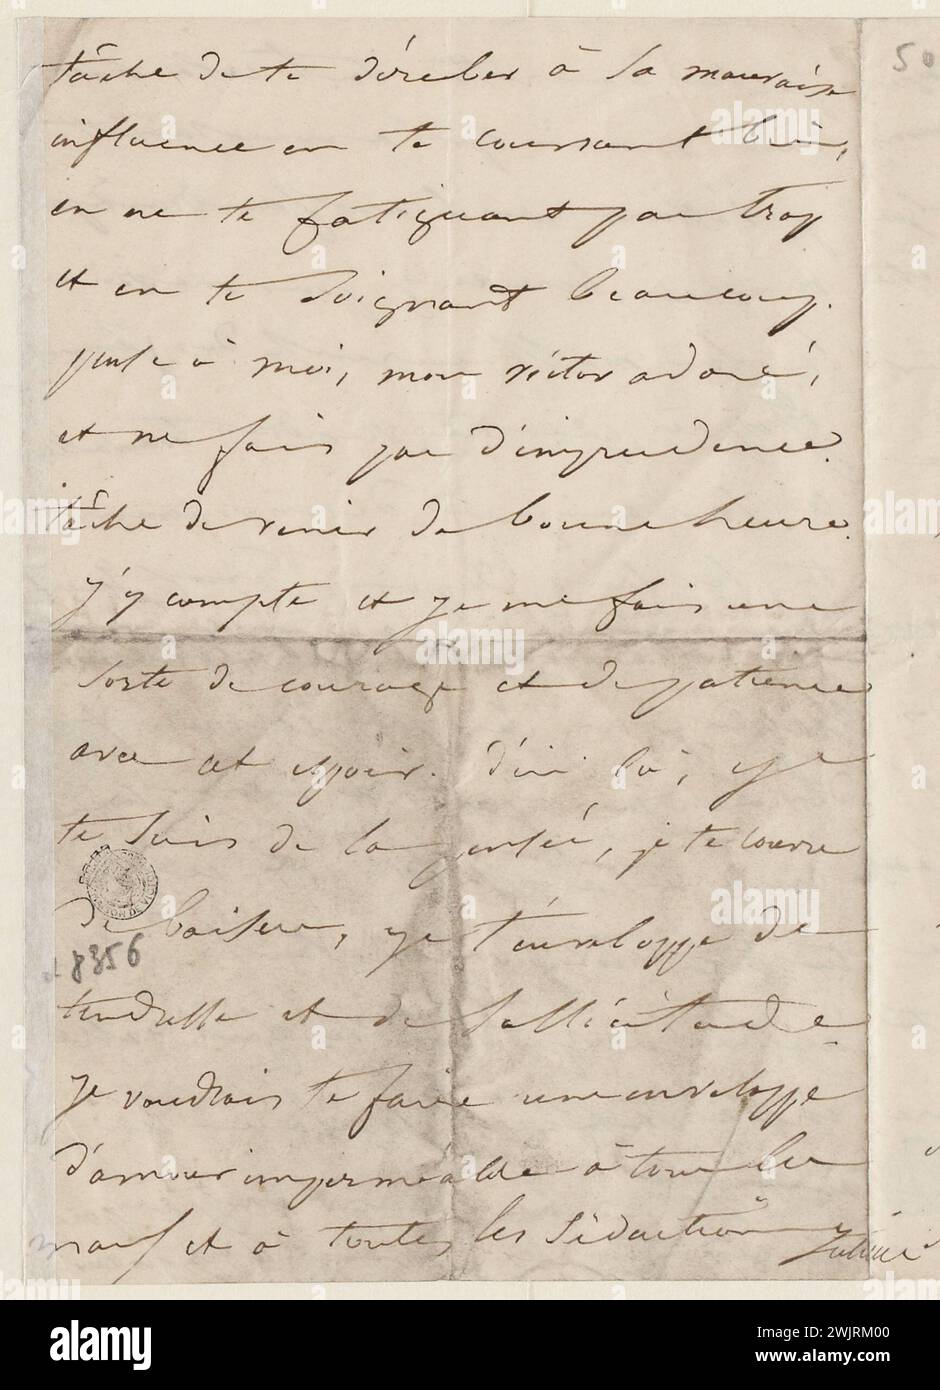 tâche de te dérober à sa mauvaise
influence en te couvrant bien,
en ne te fatiguant pas trop
et en te soignant beaucoup.
pense à moi, mon Victor adoré,
et ne fais pas d'imprudence.
tâche de venir de bonne heure.
J'y compte et je me fais une
sorte de courage et de patience
avec cet espoir. d'ici là, je
te suis de la pensée, je te couvre
de baisers, je t'enveloppe de
tendresse et de sollicitude.
Je voudrais te faire une enveloppe
d'amour imperméable à tous les
maux et à toutes les séductions
Juliette
8356
50
alamy
Image ID: 2WJRM00
www.alamy.com